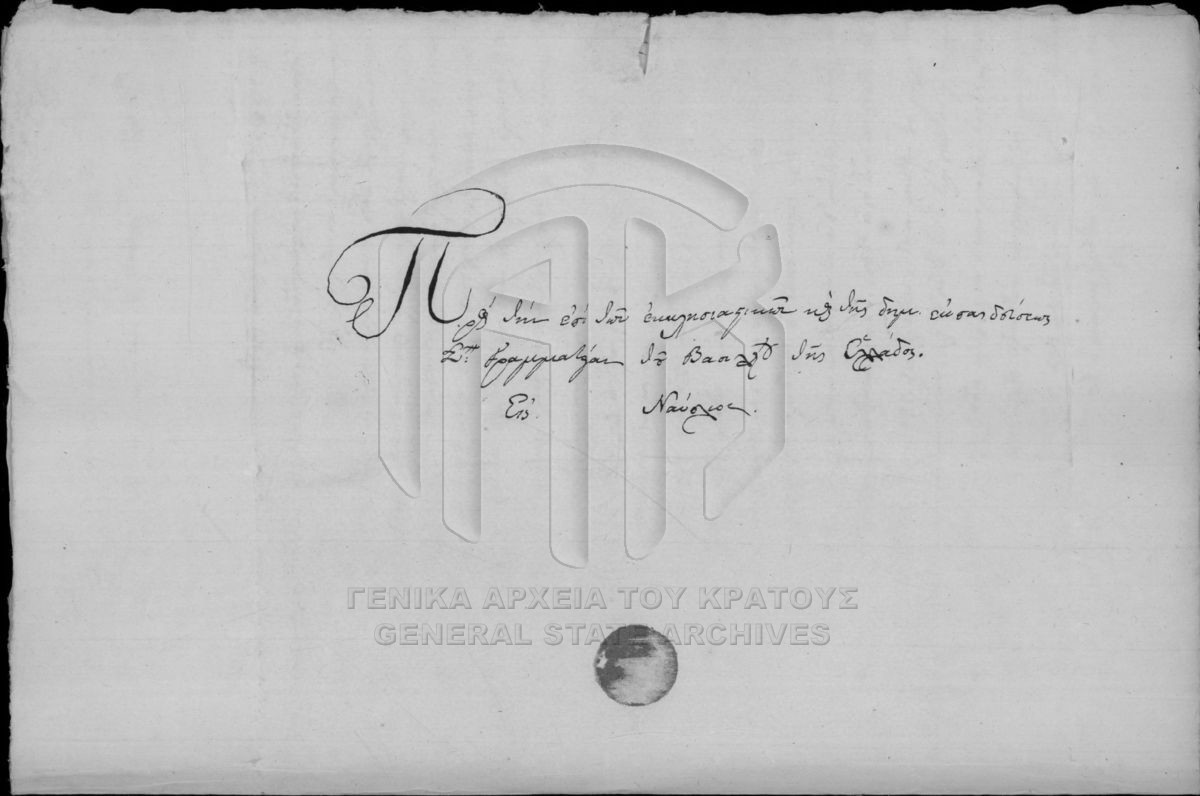 Πρὸς τὴν ἐπὶ τῶν ἐκκλησιαστικῶν κ τῆς δημ. ἐκπαιδεύσεως
Γραμματείαν τοῦ Βασιλείου τῆς Ἑλλάδος.
Εἰς Ναύπλιον.
ΓΕΝΙΚΑ ΑΡΧΕΙΑ ΤΟΥ ΚΡΑΤΟΥΣ
GENERAL STATE ARCHIVES